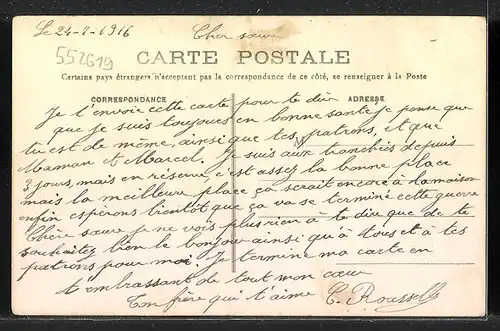 Le 24-2-1916 Cher sœur
552619
CARTE POSTALE
Certains pays étrangers n'acceptant pas la correspondance de ce côté, se renseigner à la Poste
CORRESPONDANCE ADRESSE
Je t'envoie cette carte pour te dire
que je suis toujours en bonne santé je pense que
tu est de même, ainsi que tes patrons, et que
Maman et Marcel. Je suis aux tranchées depuis
3 jours, mais en réserve, c'est assez la bonne place
mais la meilleure place ça serait encore à la maison
enfin espérons bientôt que ça va se terminé cette guerre
Chère sœur je ne vois plus rien à te dire que de te
souhaitez bien le bonjour ainsi qu'à tous et à tes
patrons pour moi. Je termine ma carte en
t'embrassant de tout mon cœur
Ton frère qui t'aime C. Roussel